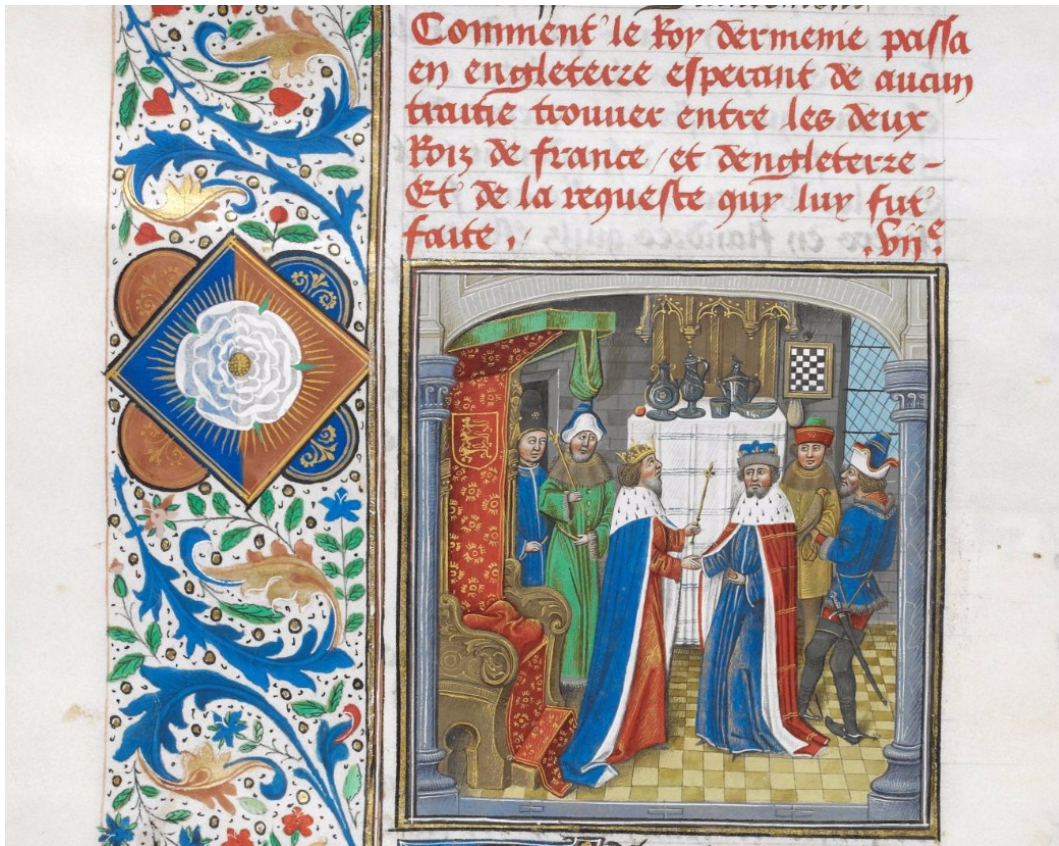 Comment le Roy dermenie passa
en engleterre esperant de aucun
traitie trouuer entre les deux
Roiz de france / et dengleterre -
Et de la requeste quy luy fut
faite . . vije.